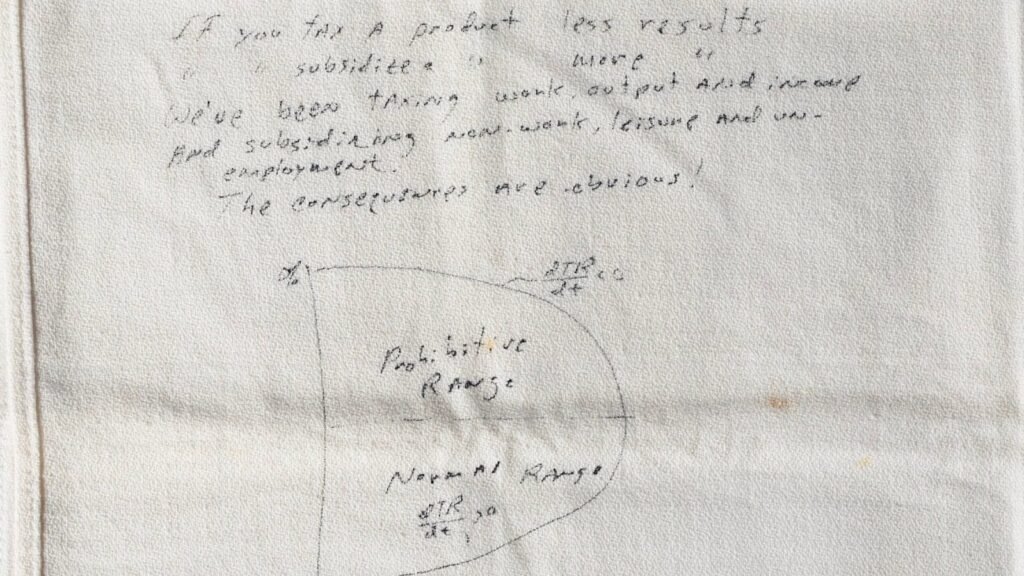 If you tax a product less results
" " subsidize a " more "
We've been taxing work, output and income
and subsidizing non-work, leisure and un-
employment.
The consequences are obvious!
% dTR/dt < 0
Prohibitive
Range
Normal Range
dTR/dt > 0